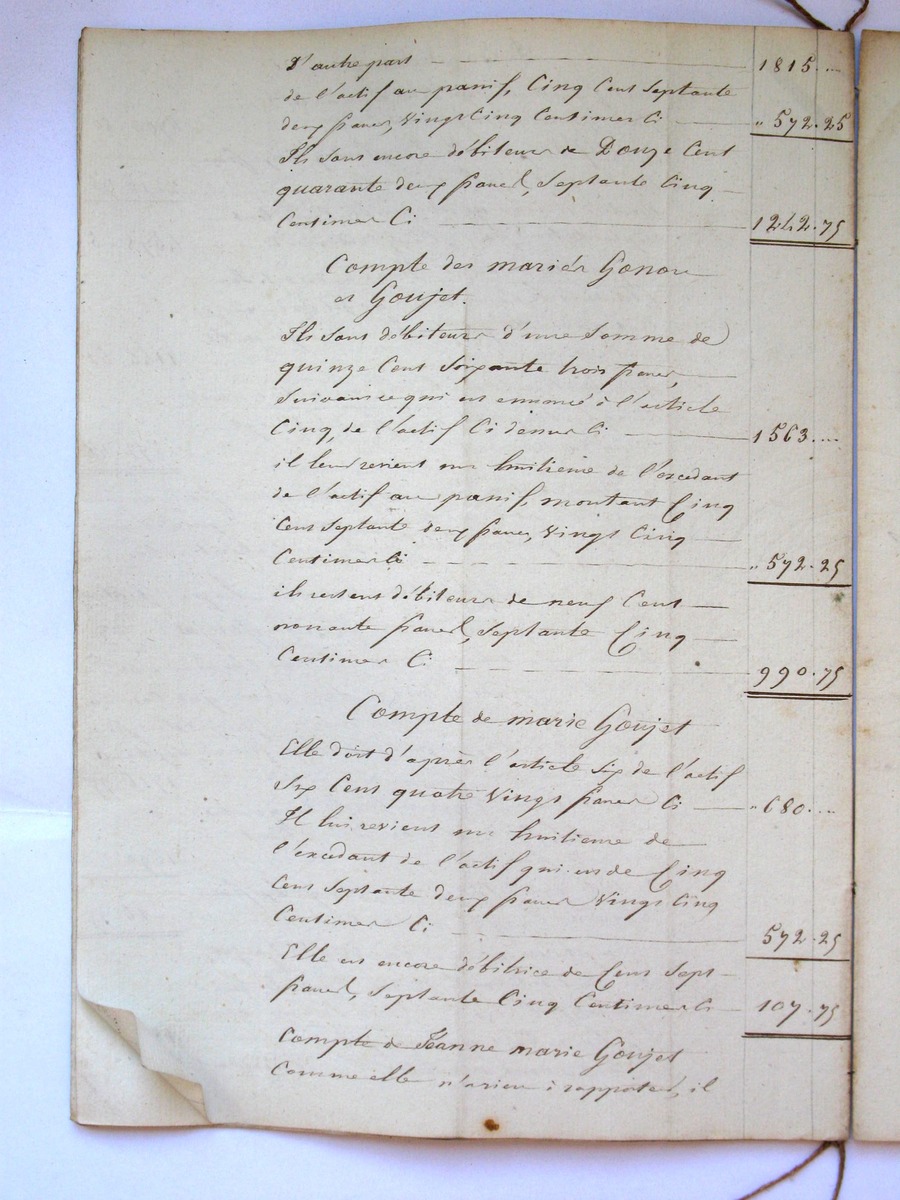 D'autre part 1815....
de l'actif au passif, Cinq Cent Septante
deux francs, Vingt Cinq Centimes Ci " 572.25
Ils sont encore débiteurs de Douze Cent
quarante deux francs, Septante Cinq
Centimes Ci 1242.75
Compte des mariés Gonon
et Goujet.
Ils sont débiteurs d'une Somme de
quinze Cent Soixante trois francs,
Suivant ce qui est ennoncé à l'article
Cinq, de l'actif Ci dessus Ci 1563....
il leur revient un huitieme de l'excedant
de l'actif au passif, montant Cinq
Cent Septante deux francs, Vingt Cinq
Centimes Ci " 572.25
ils restent débiteurs de neuf Cent
nonante francs, Septante Cinq
Centimes Ci 990.75
Compte de marie Goujet
Elle doit d'après l'article Six de l'actif
Six Cent quatre Vingt francs Ci " 680....
Il lui revient un huitieme de
l'excedant de l'actif qui est de Cinq
Cent Septante deux francs Vingt Cinq
Centimes Ci 572.25
Elle est encore débitrice de Cent Sept
francs, Septante Cinq Centimes Ci 107.75
Compte de Jeanne marie Goujet
Comme elle n'a rien à rapporter, il